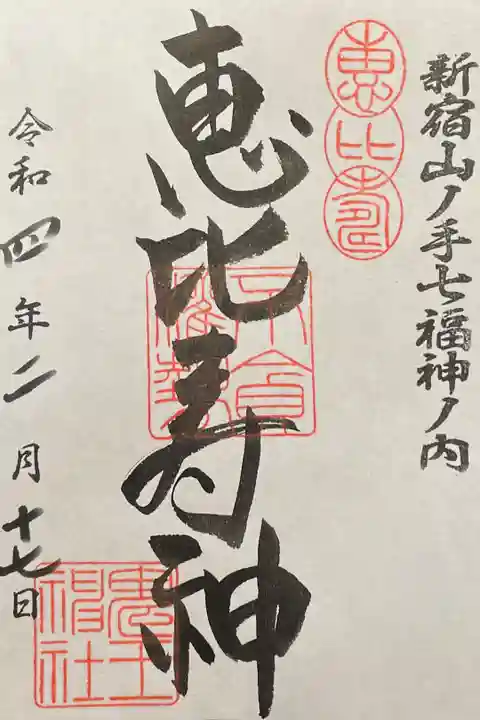 新宿山ノ手七福神ノ内
恵比寿
恵比寿神
令和四年二月十七日